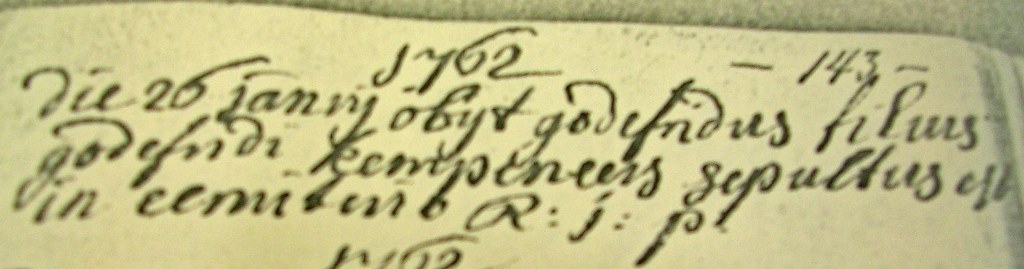 1762 - 143 -
Die 26 janrij obyt godefridus filius
godefridi Kempeneers sepultus est
in cemiterio R: j: p:
1762